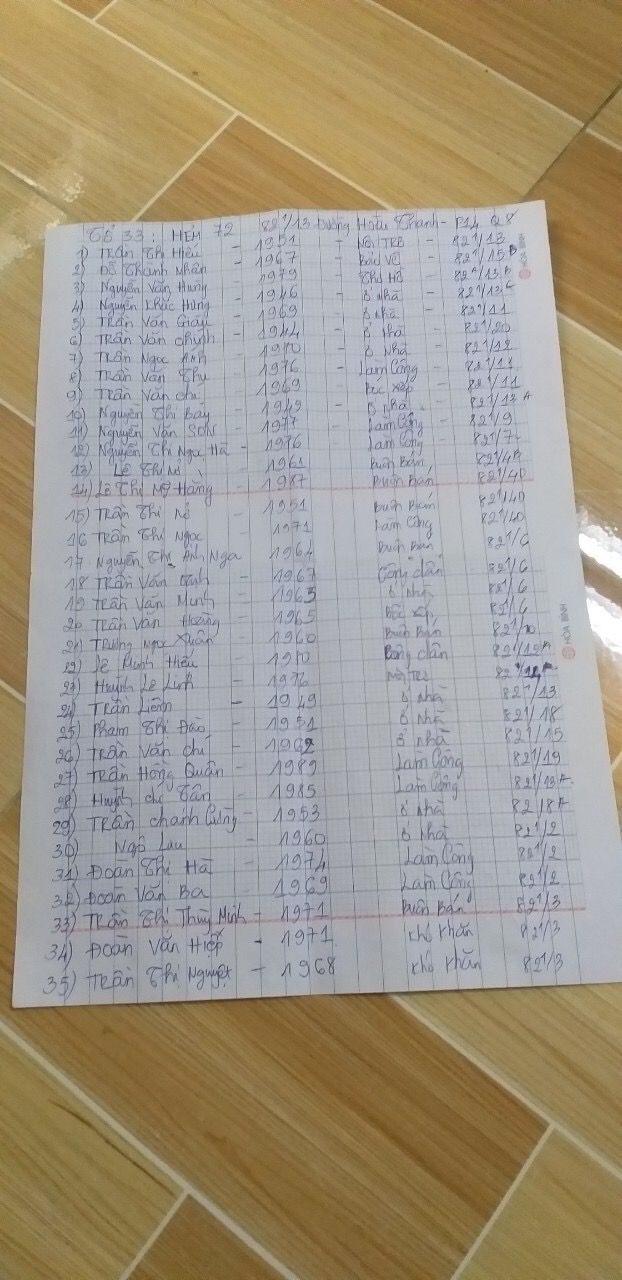 Tổ 33: HẺM 72 82¹/13 Đường Hoài Thanh - P14 Q8
1) Trần Thị Hiếu - 1951 - Nội Trợ - 82¹/13
2) Đỗ Thanh Nhân - 1967 - Bảo Vệ - 82¹/15B
3) Nguyễn Văn Hưng - 1979 - Thợ Hồ - 82¹/13B
4) Nguyễn Khắc Hùng - 1946 - ở nhà - 82¹/13C
5) Trần Văn - 1969 - ở nhà - 82¹/11
6) Trần Văn chinh - 1944 - ở nhà - 82¹/20
7) Trần Ngọc Anh - ở nhà - 82¹/12
8) Trần Văn Thu - 1976 - Làm Công - 82¹/11
9) Trần Văn chí - 1969 - Bốc xếp - 82¹/11
10) Nguyễn Thị Bảy - 1949 - ở nhà - 82¹/13A
11) Nguyễn Văn Sơn - 1977 - Làm Công - 82¹/9
12) Nguyễn Thị Ngọc Hà - 1976 Làm Công - 82¹/7
13) Lê Thị Nở - 1961 Buôn Bán 82¹/4
14) Lê Thị Mỹ Hằng - 1987 Buôn Bán 82¹/4D
15) Trần Thị Nở - 1951 Buôn Bán 82¹/4D
16 Trần Thị Ngọc - 1971 Làm Công 82¹/4D
17 Nguyễn Thị Ánh Nga 1964 Buôn Bán 82¹/6
18 Trần Văn - 1967 Công dân 82¹/6
19 Trần Văn Minh - 1963 ở nhà 82¹/6
20 Trần Văn Hoàng - 1965 Bốc xếp 82¹/6
21) Trương Ngọc Xuân - 1960 Buôn Bán 82¹/10
22) Lê Minh Hiếu - Công dân 82¹/12A
23) Huỳnh Lê Linh - 1976 Nội Trợ
24) Trần Liêm - 1949 ở nhà 82¹/13
25) Phạm Thị Đào - 1951 ở nhà 82¹/18
26) Trần Văn chí - ở nhà 82¹/15
27) Trần Hồng Quân - 1989 Làm Công 82¹/19
28) Huỳnh chí Tân - 1985 Làm Công 82¹/13A
29) Trần chanh Cường - 1953 ở nhà 82¹/8A
30) Ngô Lưu - 1960 ở nhà 82¹/2
31) Đoàn Thị Hà - 1974 Làm Công 82¹/2
32) Đoàn Văn Ba - 1969 Làm Công 82¹/2
33) Trần Thị Thúy Minh - 1971 Buôn Bán 82¹/3
34) Đoàn Văn Hiệp - 1971 khó khăn 82¹/3
35) Trần Thị Nguyệt - 1968 khó khăn 82¹/3